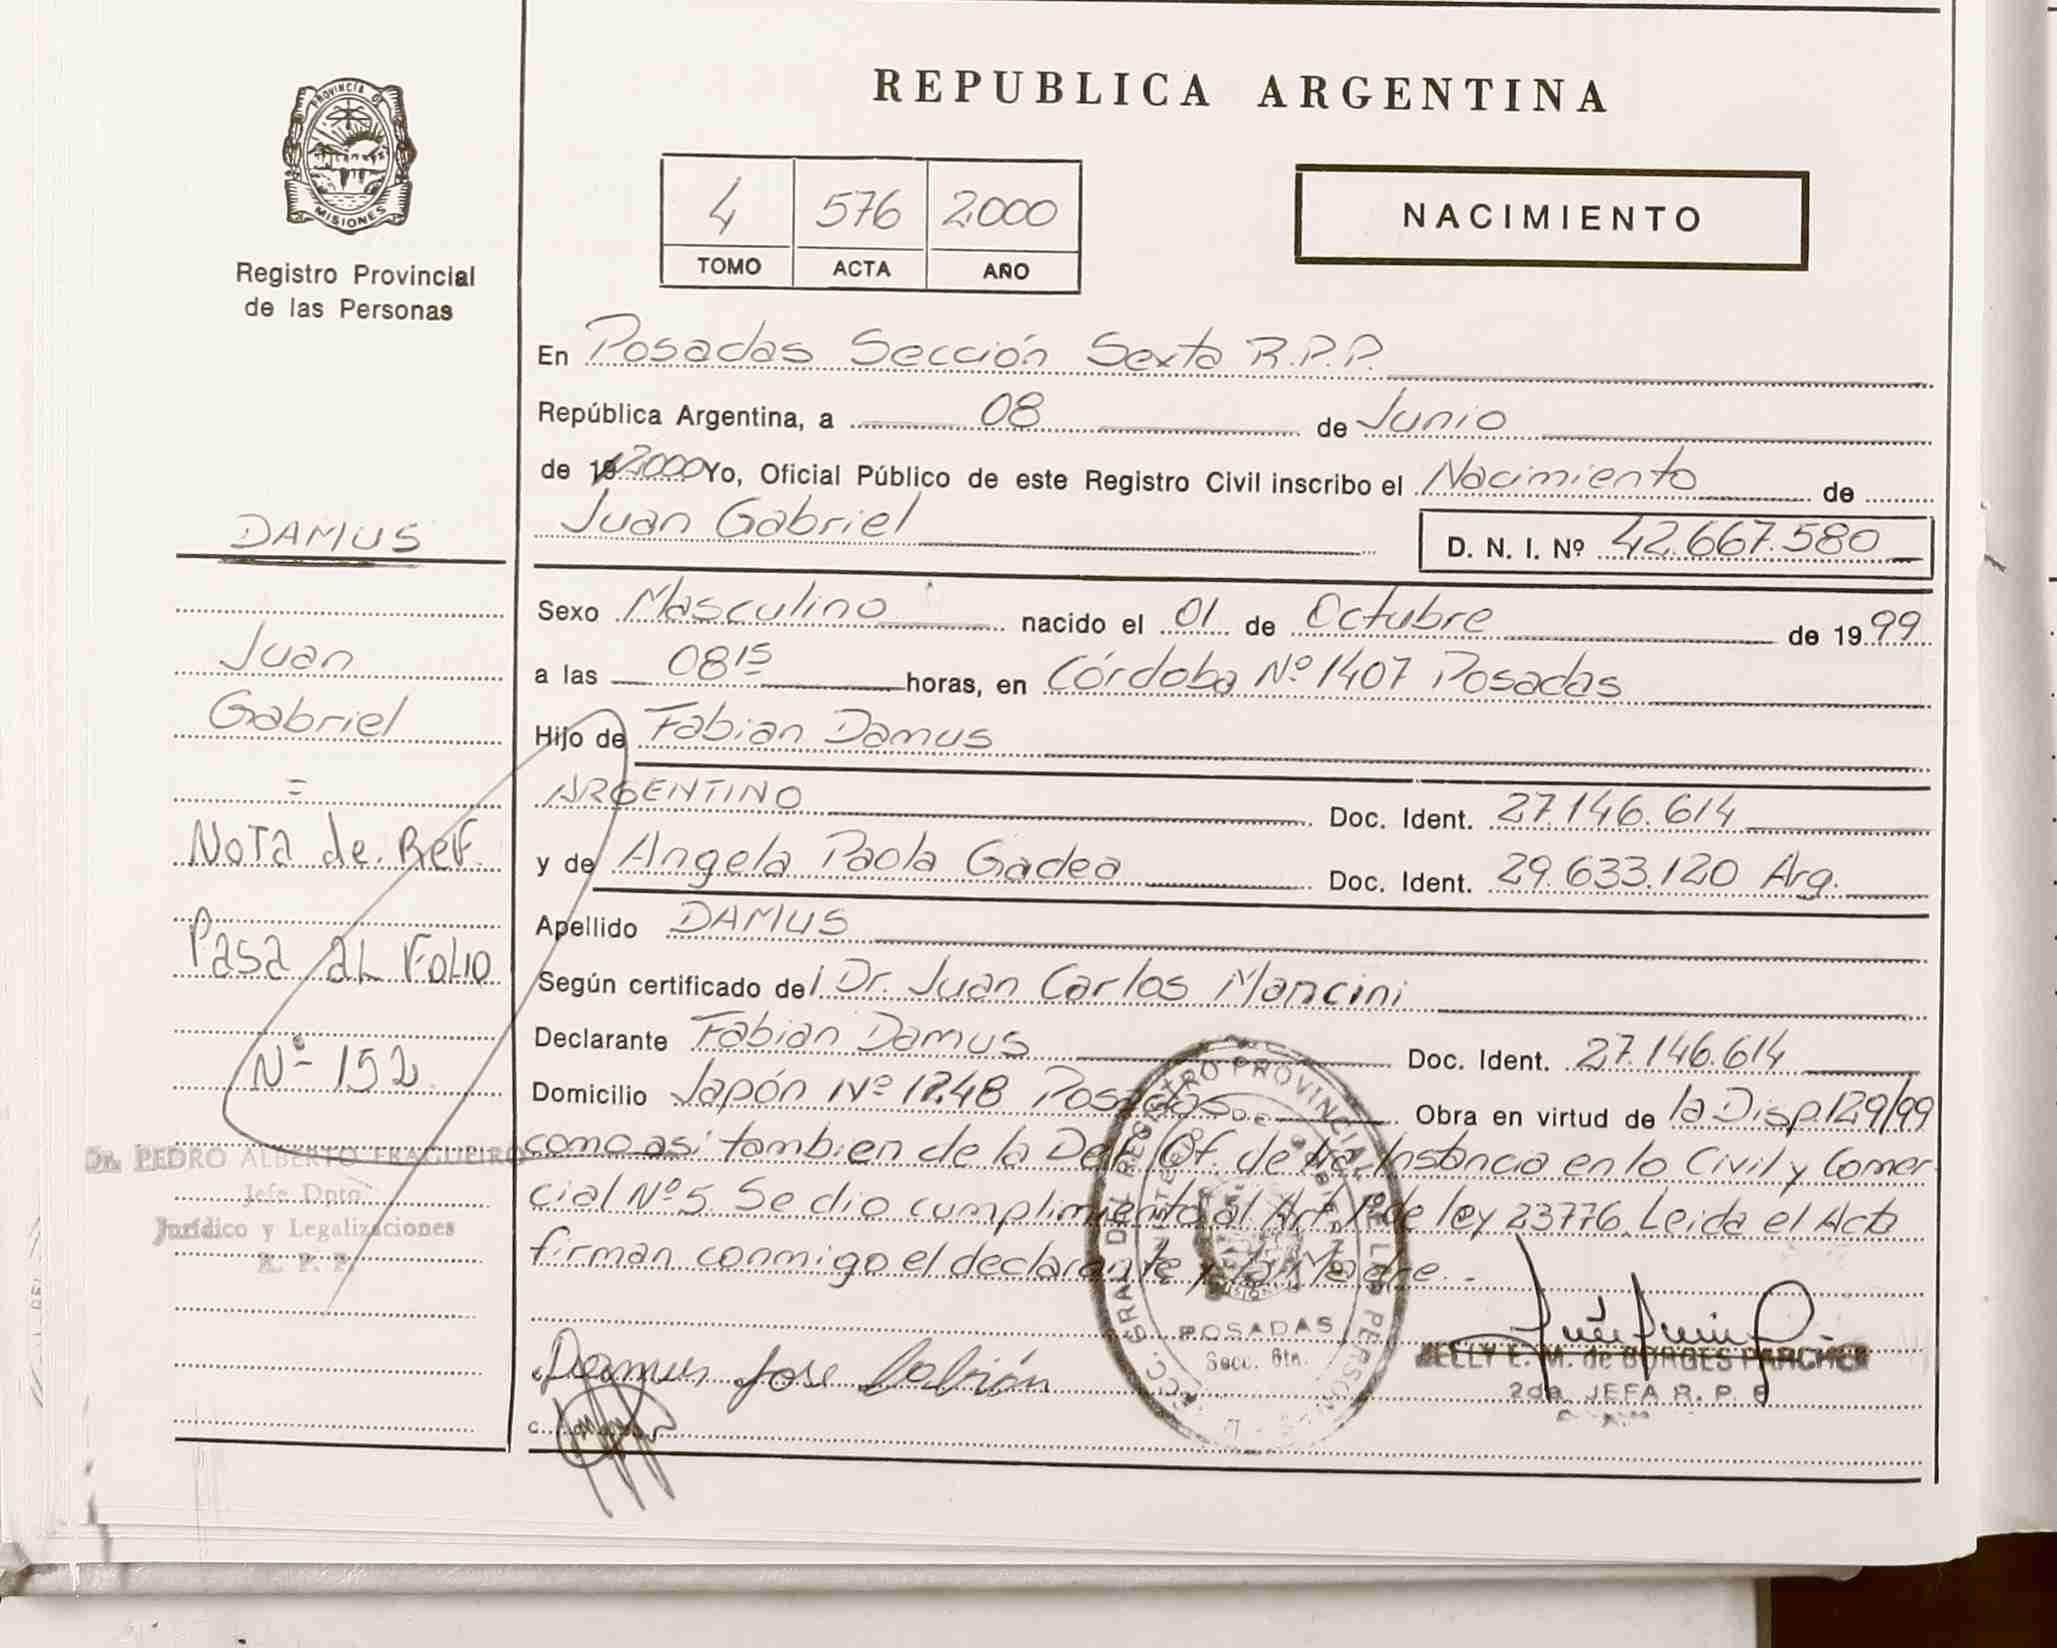 REPUBLICA ARGENTINA
PROVINCIA DE
MISIONES
Registro Provincial
de las Personas
4 576 2000
TOMO ACTA AÑO
NACIMIENTO
En Posadas Sección Sexta R.P.P.
República Argentina, a 08 de Junio
de 19 2000 Yo, Oficial Público de este Registro Civil inscribo el Nacimiento de
Juan Gabriel D. N. I. Nº 42.667.580
Sexo Masculino nacido el 01 de Octubre de 1999
a las 08 15 horas, en Córdoba Nº 1407 Posadas
Hijo de Fabian Damus
ARGENTINO Doc. Ident. 27.146.614
y de Angela Paola Gadea Doc. Ident. 29.633.120 Arg.
Apellido DAMUS
Según certificado del Dr. Juan Carlos Mancini
Declarante Fabian Damus Doc. Ident. 27.146.614
Domicilio Japón Nº 1248 Posadas Obra en virtud de la Disp. 129/99
como asi tambien de la Def. Of. de Instancia en lo Civil y Comer
cial Nº 5. Se dio cumplimiento al Art 1º de ley 23776. Leida el Acta
firman conmigo el declarante y la Madre.-
Damus Jose Fabián
DAMUS
Juan
Gabriel
=
Nota de Ref.
Pasa al Folio
Nº 152
Dr. PEDRO ALBERTO FRAGUEIRO
Jefe Dpto.
Jurídico y Legalizaciones
R. P. P.
REGISTRO PROVINCIAL DE LAS PERSONAS
POSADAS
Secc. 6ta.
NELLY E. M. de BORGES
2da. JEFA R. P. P.